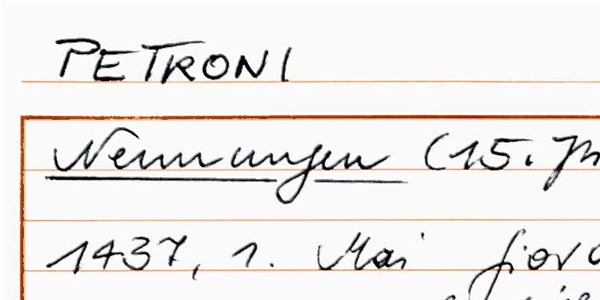 PETRONI
Nennungen (15. Jh
1437, 1. Mai Giova